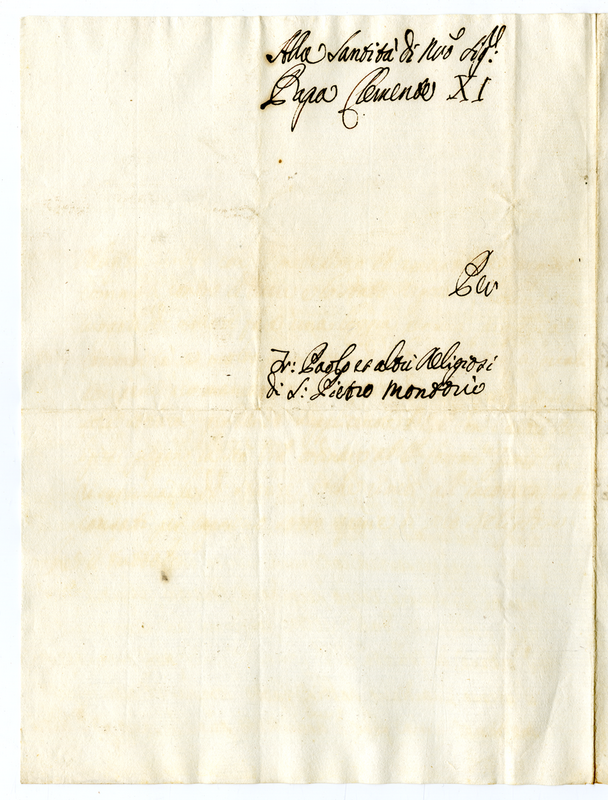 Alla Santità di Nrõ Sigr̃:
Papa Clemente XI
Per
Fr: Paolo et altri Religiosi
di S: Pietro Montorio